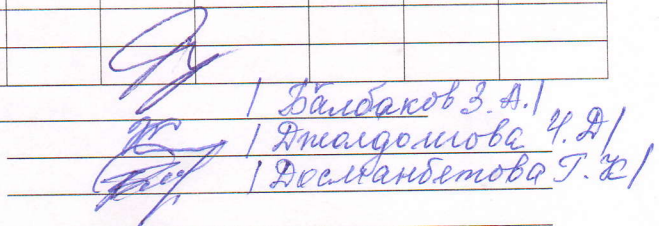 / Балбаков З. А. /
/ Джолдошова Ч. Д /
/ Досманбетова Г. К /